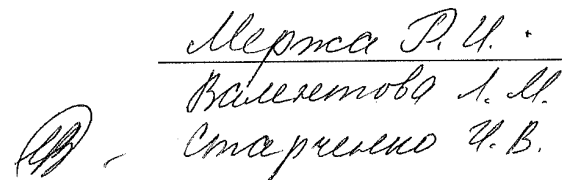 Мержа Р. И.
Валентова Л. М.
Старченко И. В.